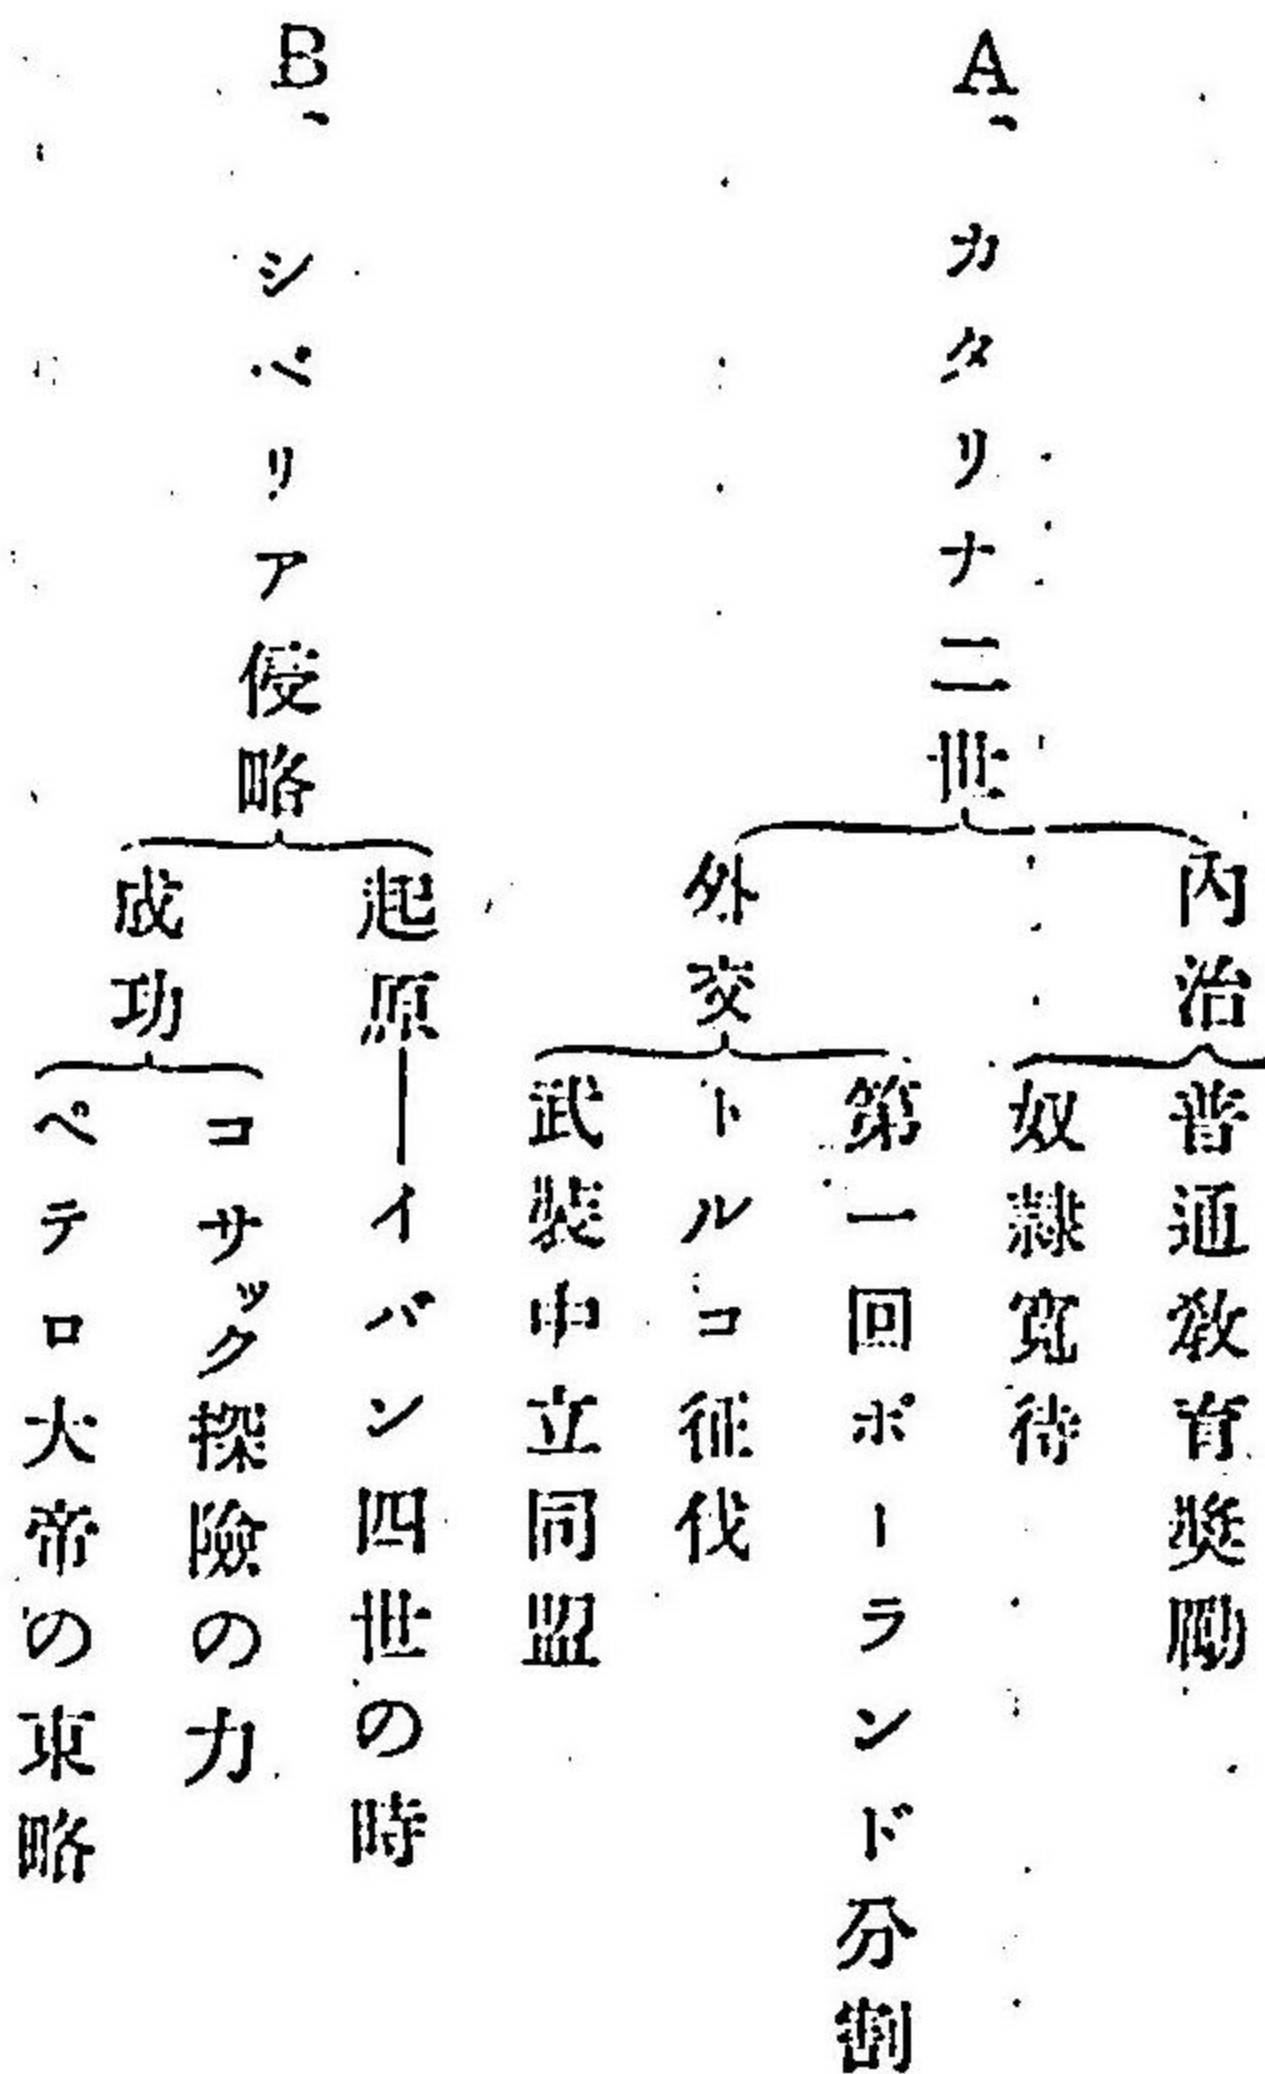 A、カタリナ二世
内治
普通教育奬勵
奴隷寬待
外交
第一回ポーランド分割
トルコ征伐
武裝中立同盟
B、シベリア侵略
起原――イバン四世の時
成功
コサック探險の力
ペテロ大帝の東略